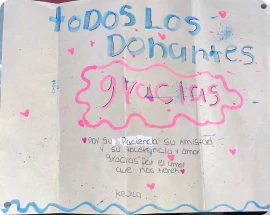 toDOS LOS
Donantes
gracias
Por su Paciencia su amistad
y su tolerancia y amor
gracias por el amor
que nos tienen